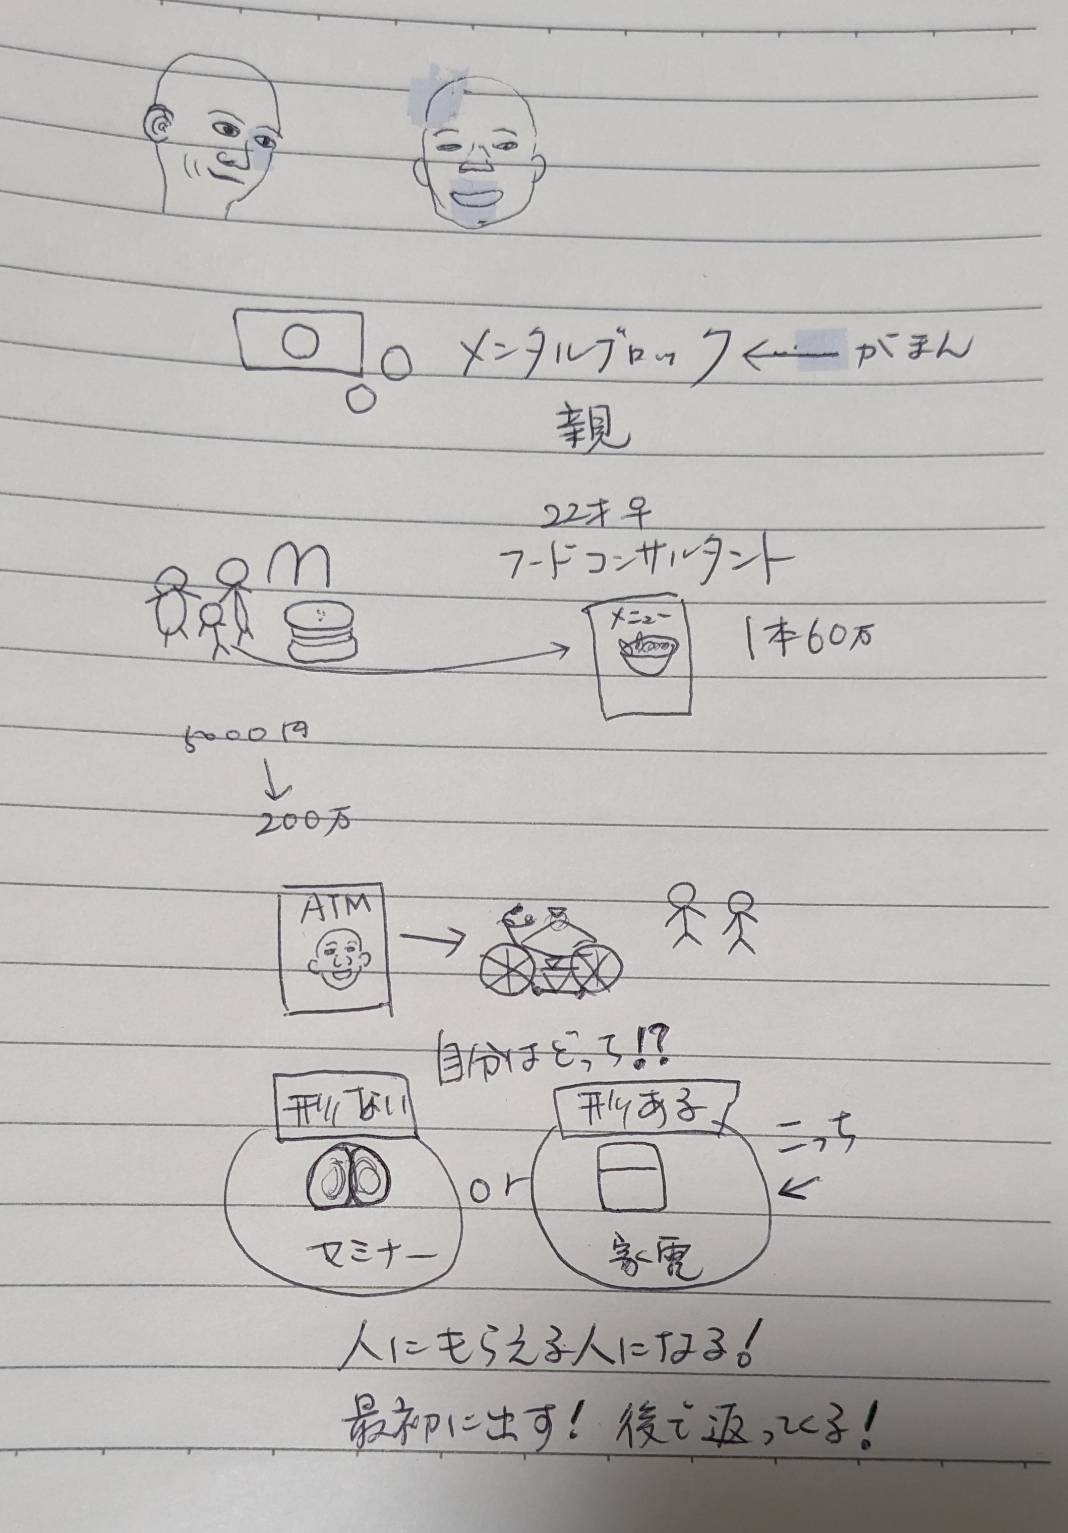 メンタルブロック ← がまん
親
22才 早
フードコンサルタント
M
メニュー
1本60万
5000円
↓
200万
ATM
自分はどっち!?
形ない
形ある
こっち
or
セミナー
家電
人にもらえる人になる!
最初に出す! 後で返ってくる!